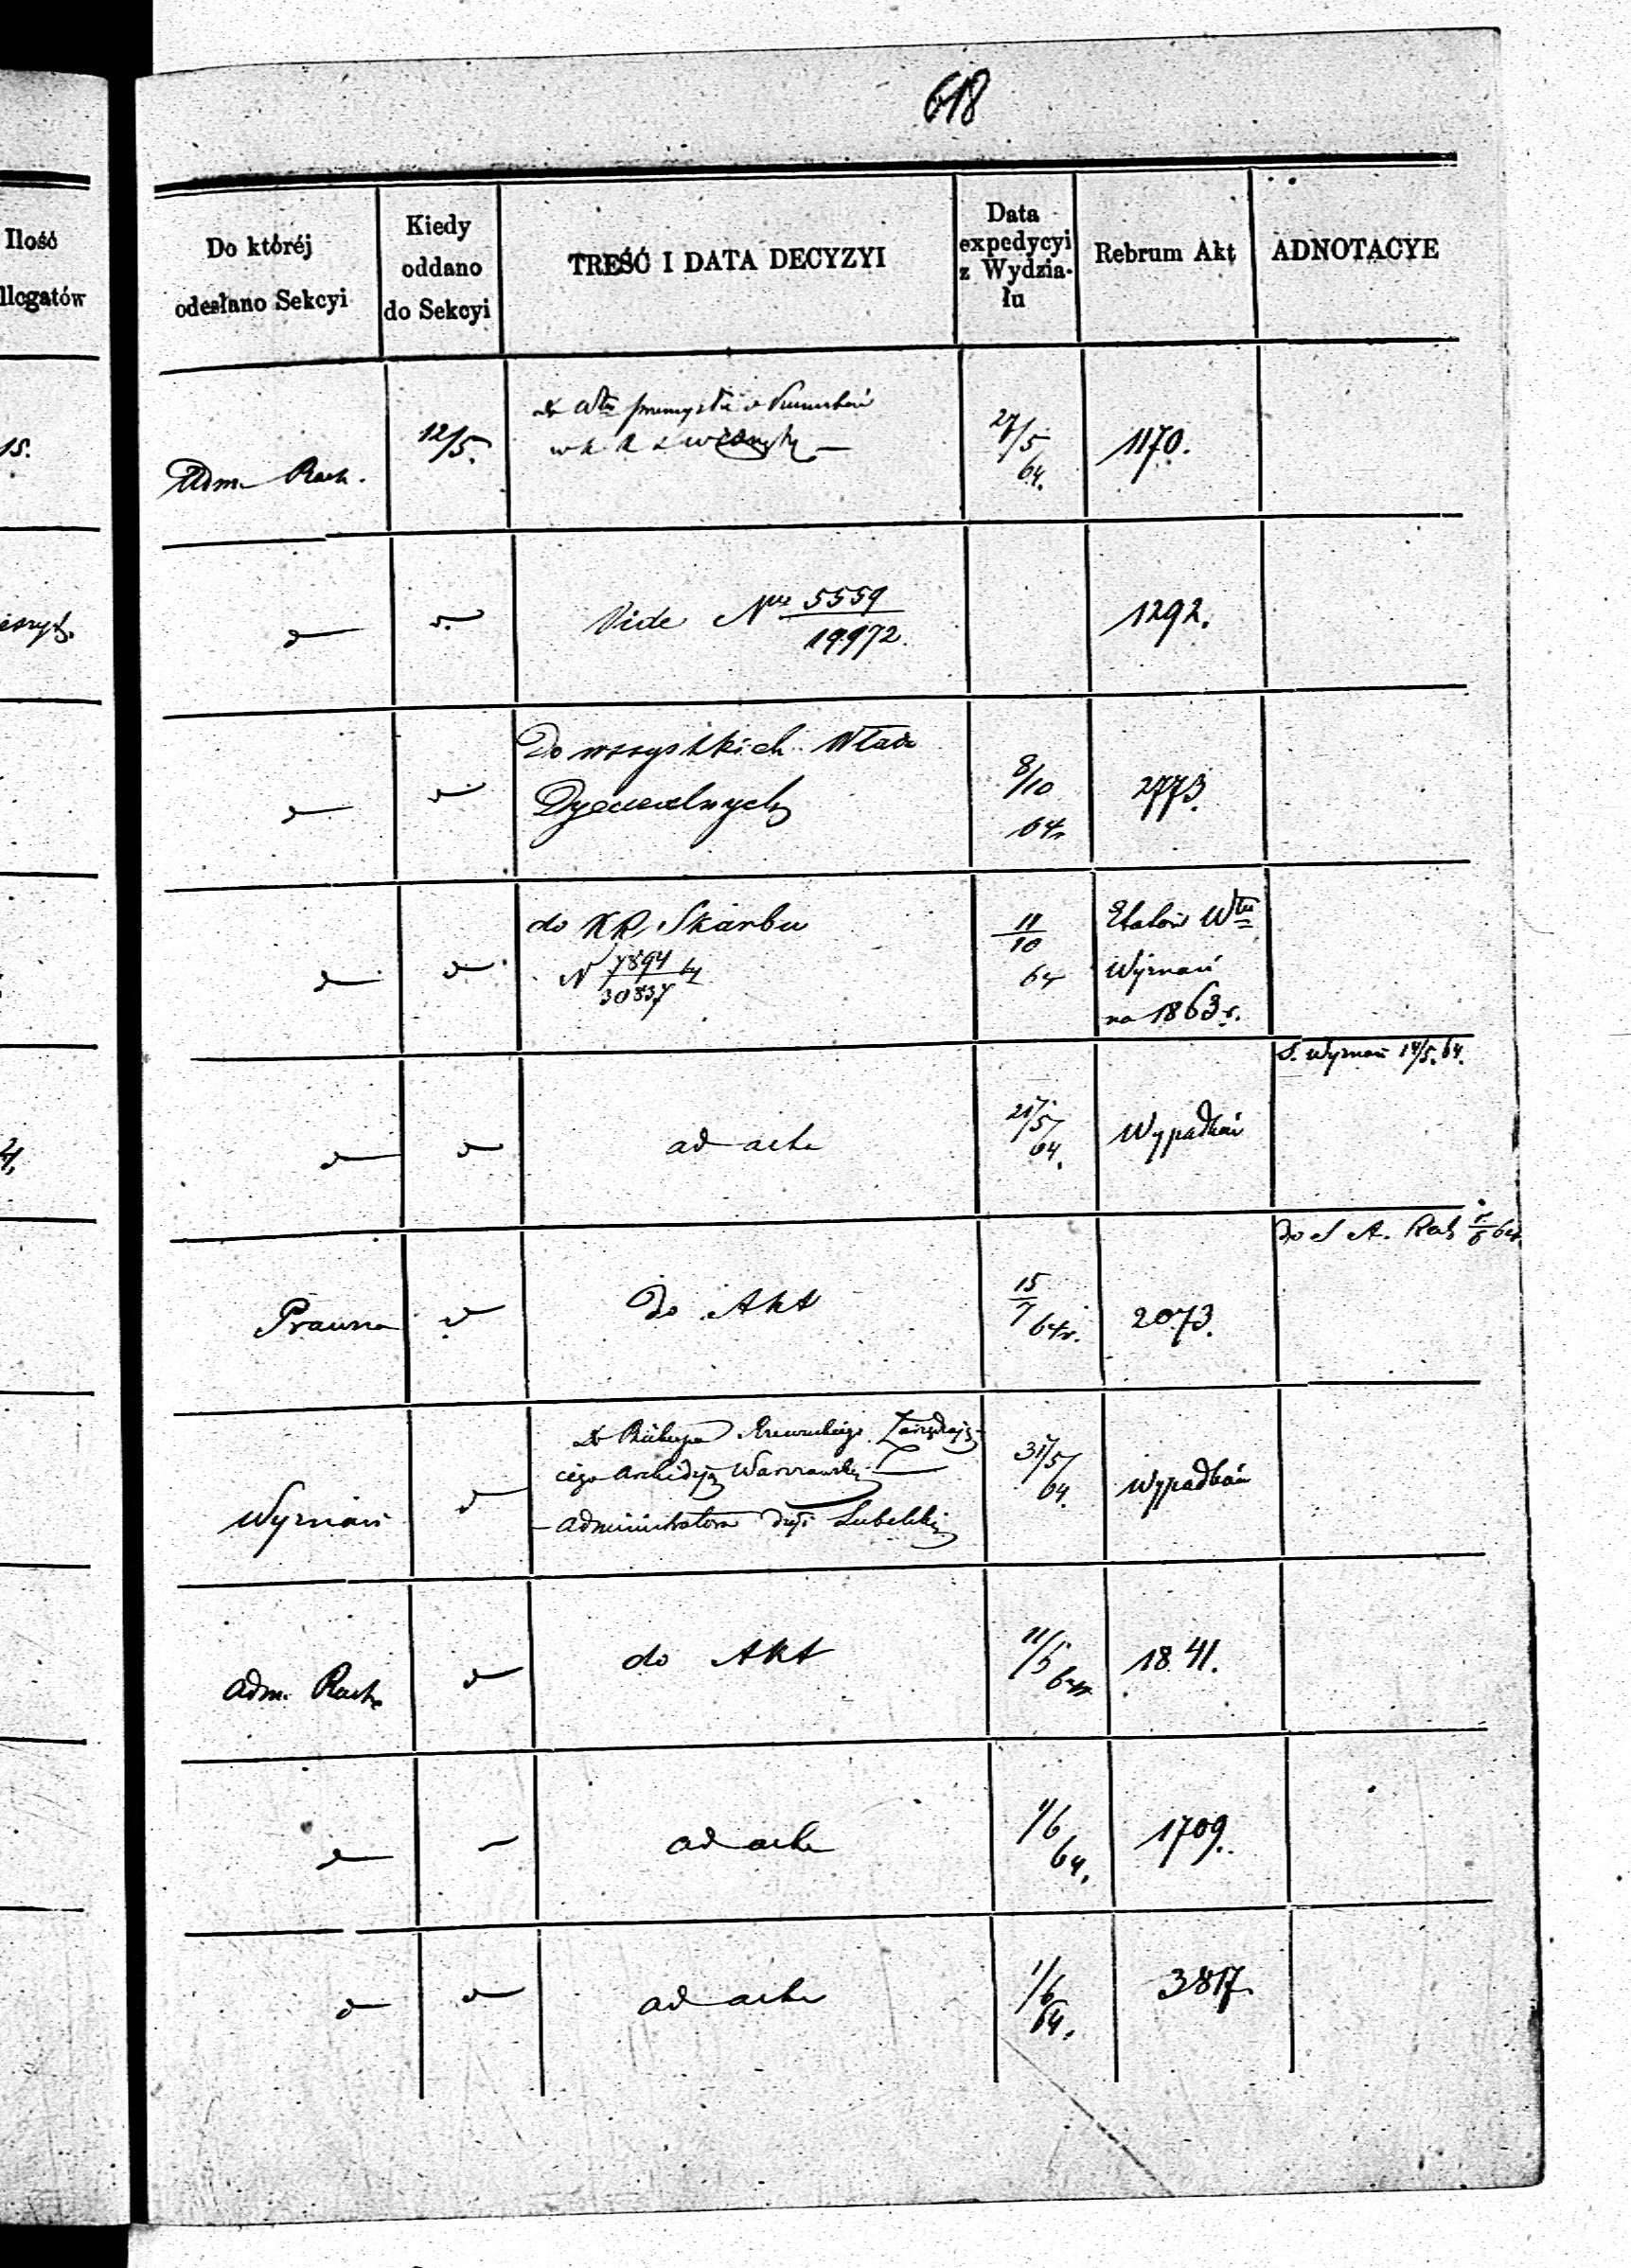 618
Ilość
llegatów
Do któréj
odesłano Sekcyi
Kiedy
oddano
do Sekcyi
TREŚĆ I DATA DECYZYI
Data
expedycyi
z Wydzia-
łu
Rebrum Akt
ADNOTACYE
15.
Adm. Rach.
12/5.
27/5
64.
1170.
Vide Nr 5559
19972.
1292.
Do wszystkich Władz
Dyecezalnych
8/10
64r
2773.
do KR Skarbu
N 7894
30837
11
10
64
Etatów Włu
Wyznań
na 1863 r.
S. Wyznań 14/5. 64.
ad acta
21/5
64.
Wypadków
Do S A. Rach 64
Prawna
Do Akt
15
7 64r.
2073.
Wyznań
Do Biskupa Zarządzają-
cego Archidyą Warszawską
Administratora Dyi Lubelskiej
31/5
64.
Wypadków
Adm. Rach.
do Akt
11/5
64r
1841.
ad acta
1/6
64.
1709.
ad acta
1/6
64.
3817.